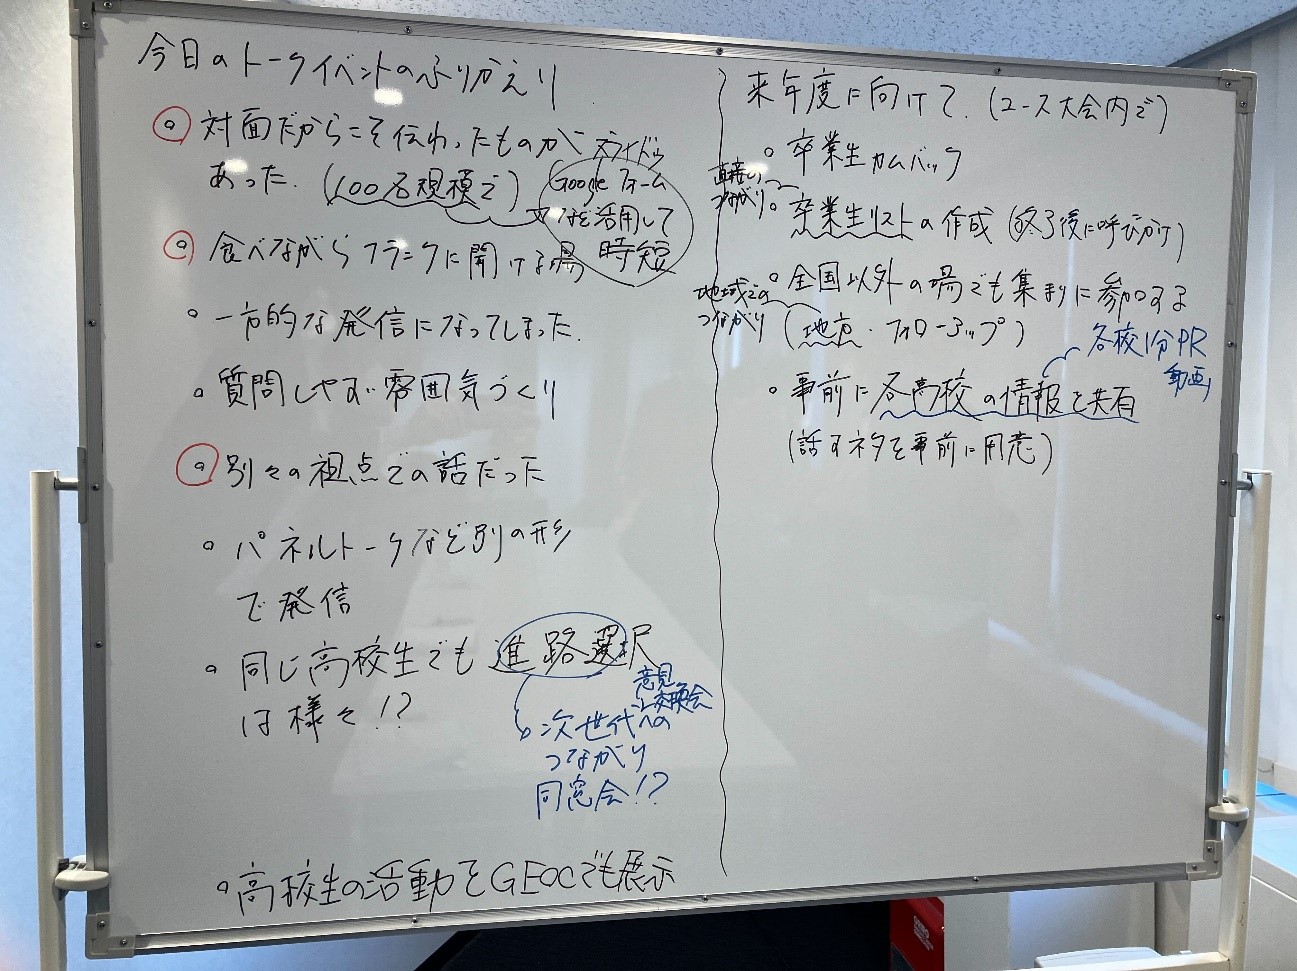 今日のトークイベントのふりかえり
対面だからこそ伝わったものが
あった.(100名規模で)
スライドや
Google フォーム
などを活用して
時短
食べながらフランクに聞ける場
一方的な発信になってしまった.
質問しやすい雰囲気づくり
別々の視点での話だった
パネルトークなど別の形
で発信
同じ高校生でも進路選択
は様々!?
意見交換会
次世代への
つながり
同窓会!?
高校生の活動をGEOCでも展示
来年度に向けて.(ユース大会内で)
卒業生カムバック
直接の
つながり
卒業生リストの作成(終了後に呼びかけ)
全国以外の場でも集まりに参加する
地域での
つながり
(地方・フォローアップ)
各校1分PR
動画
事前に各高校の情報を共有
(話すネタを事前に用意)